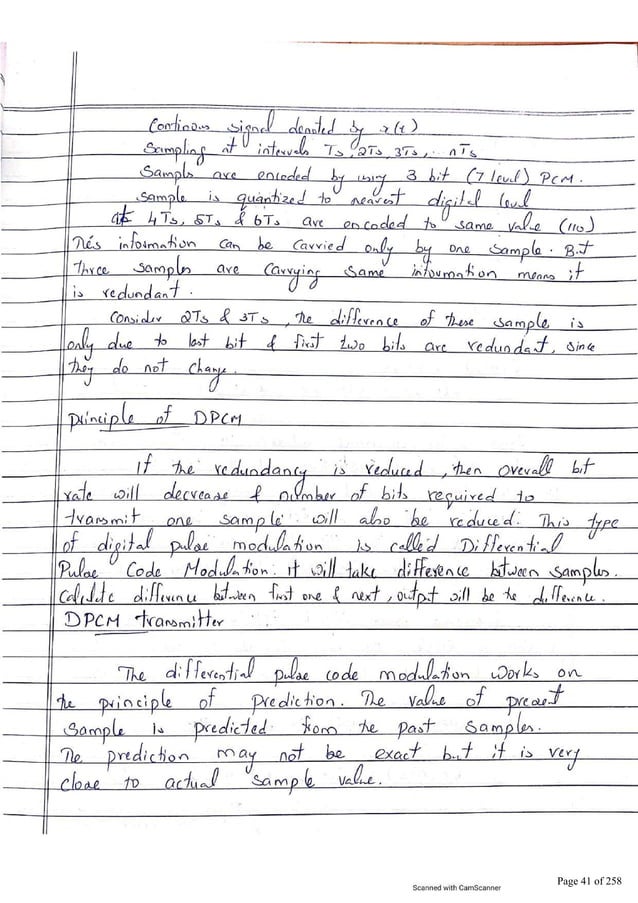 Continous signal denoted by x(t)
Sampling at intervals Ts, 2Ts, 3Ts, .. nTs
Sampls are encoded by using 3 bit (7 level) PCM.
Sample is quantized to nearest digital level
At 4Ts, 5Ts & 6Ts are encoded to same value (110)
This information can be carried only by one sample. But
three samples are carrying same information means it
is redundant.
Consider 2Ts & 3Ts, the difference of these sample is
only due to last bit & first two bits are redundant, since
they do not change.
principle of DPCM
If the redundancy is reduced, then overall bit
rate will decrease & number of bits required to
transmit one sample will also be reduced. This type
of digital pulse modulation is called Differential
Pulse Code Modulation. it will take difference between samples.
Calculate difference between first one & next, output will be the difference.
DPCM transmitter
The differential pulse code modulation works on
the principle of prediction. The value of present
sample is predicted from the past samples.
The prediction may not be exact but it is very
close to actual sample value.
Page 41 of 258
Scanned with CamScanner